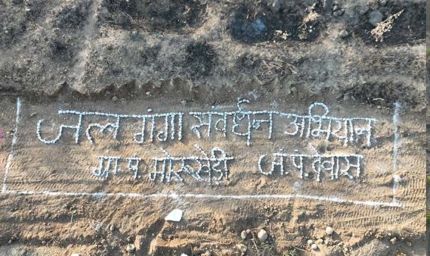 जल गंगा संवर्धन अभियान
ग्रा.पं. मोरूखेडी ज.पं. देवास